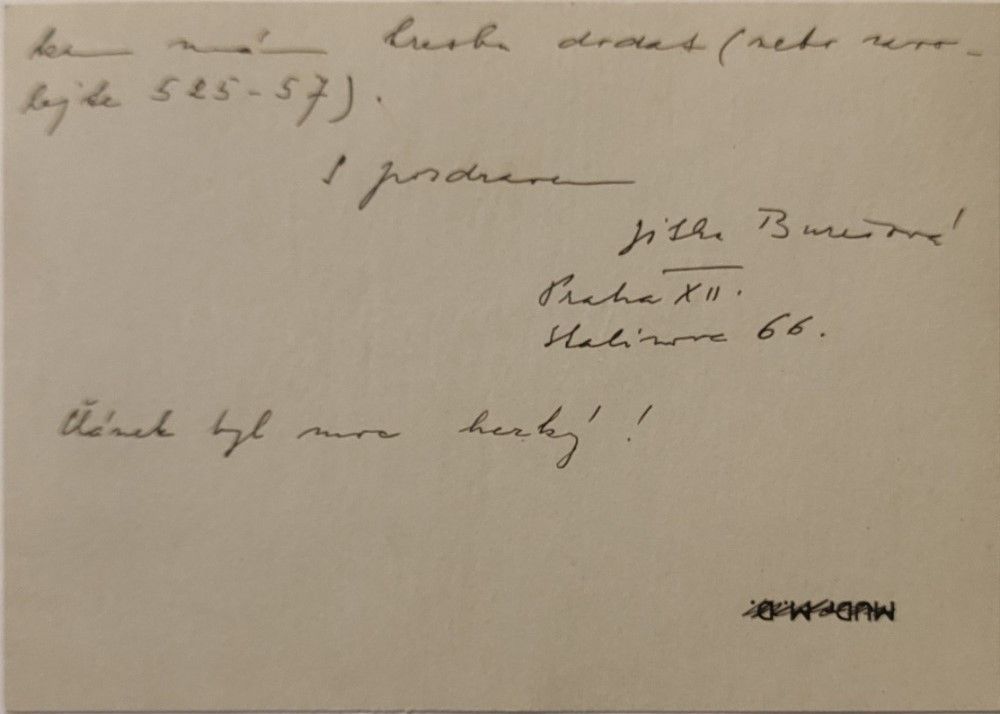 kam mám kresbu dodat (nebo zavo-
lejte 525-57).
S pozdravem
Jitka Burešová
Praha XII.
Stalinova 66.
Článek byl moc hezký!
MUDr. M. D.